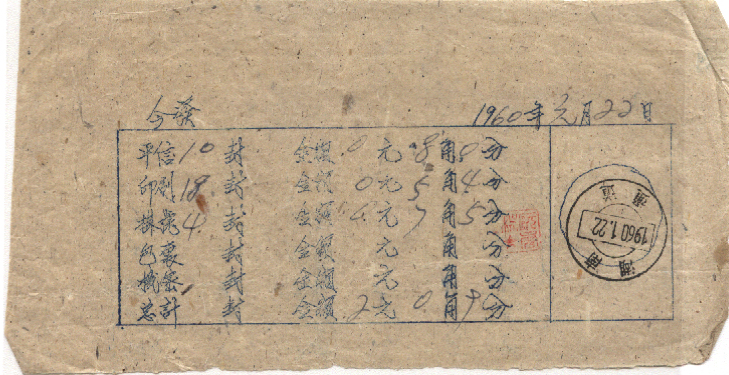 今發
1960年元月22日
平信10封 金額0元8角0分
印刷18封 金額0元5角4分
掛號4封 金額0元7角5分
包裹 封 金額 元 角 分
機密 封 金額 元 角 分
总計 封 金額2元0角9分
1960.1.22
海南